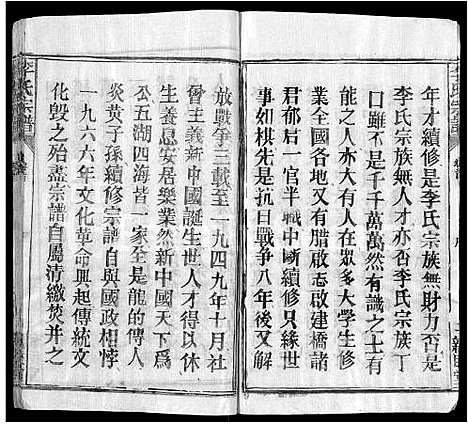 年才續修是李氏宗族無財力否是
李氏宗族無人才亦否李氏宗族丁
口雖不是千千萬萬然有識之士有
能之人亦大有人在眾多大學生修
業全國各地又有腊啟志啟建橋諸
君郁后一官半職中國諸修只緣世
事如棋先是抗日戰爭八年後又解
放戰爭三載至一九四九年十月社
會主義新中國誕生世人才得以休
生養息安居樂業然新中國天下爲
公五湖四海皆一家全是龍的傳人
炎黄子孫續修宗譜自與國政相悖
一九六六年文化革命興起傳統文
化毀之殆盡宗譜自屬清繳焚并之
李氏宗譜